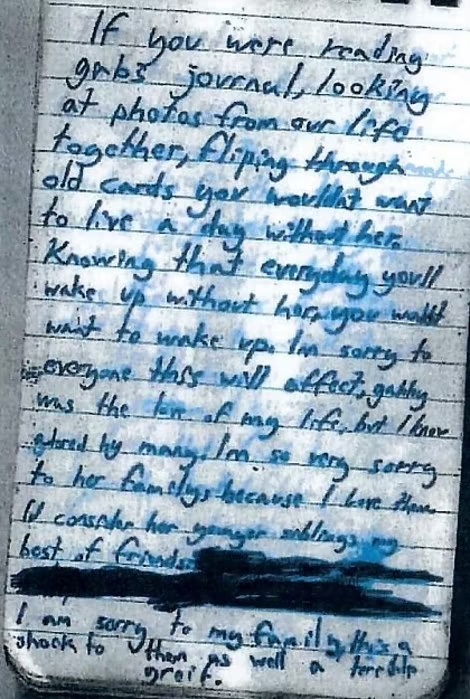 If you were reading
gabs journal, looking
at photos from our life
together, fliping through
old cards you wouldnt want
to live a day without her.
Knowing that everyday you'll
wake up without her, you wouldnt
want to wake up. Im sorry to
everyone this will affect, gabby
was the love of my life, but I know
adored by many. Im so very sorry
to her familys because I love them
I'd consider her younger siblings my
best of friends
I am sorry to my family, this is a
shock to them as well a terrible
greif.